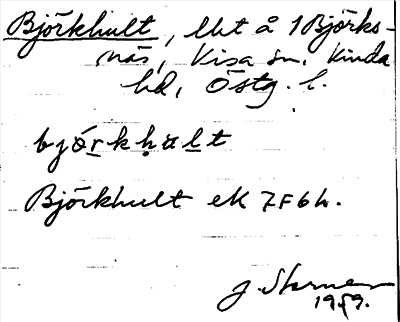 Björkhult, lht å 1 Björks-
näs, Kisa sn, Kinda
hd, Östg. l.
bjórkhult
Björkhult ek 7F6h.
J. Starner
1959.